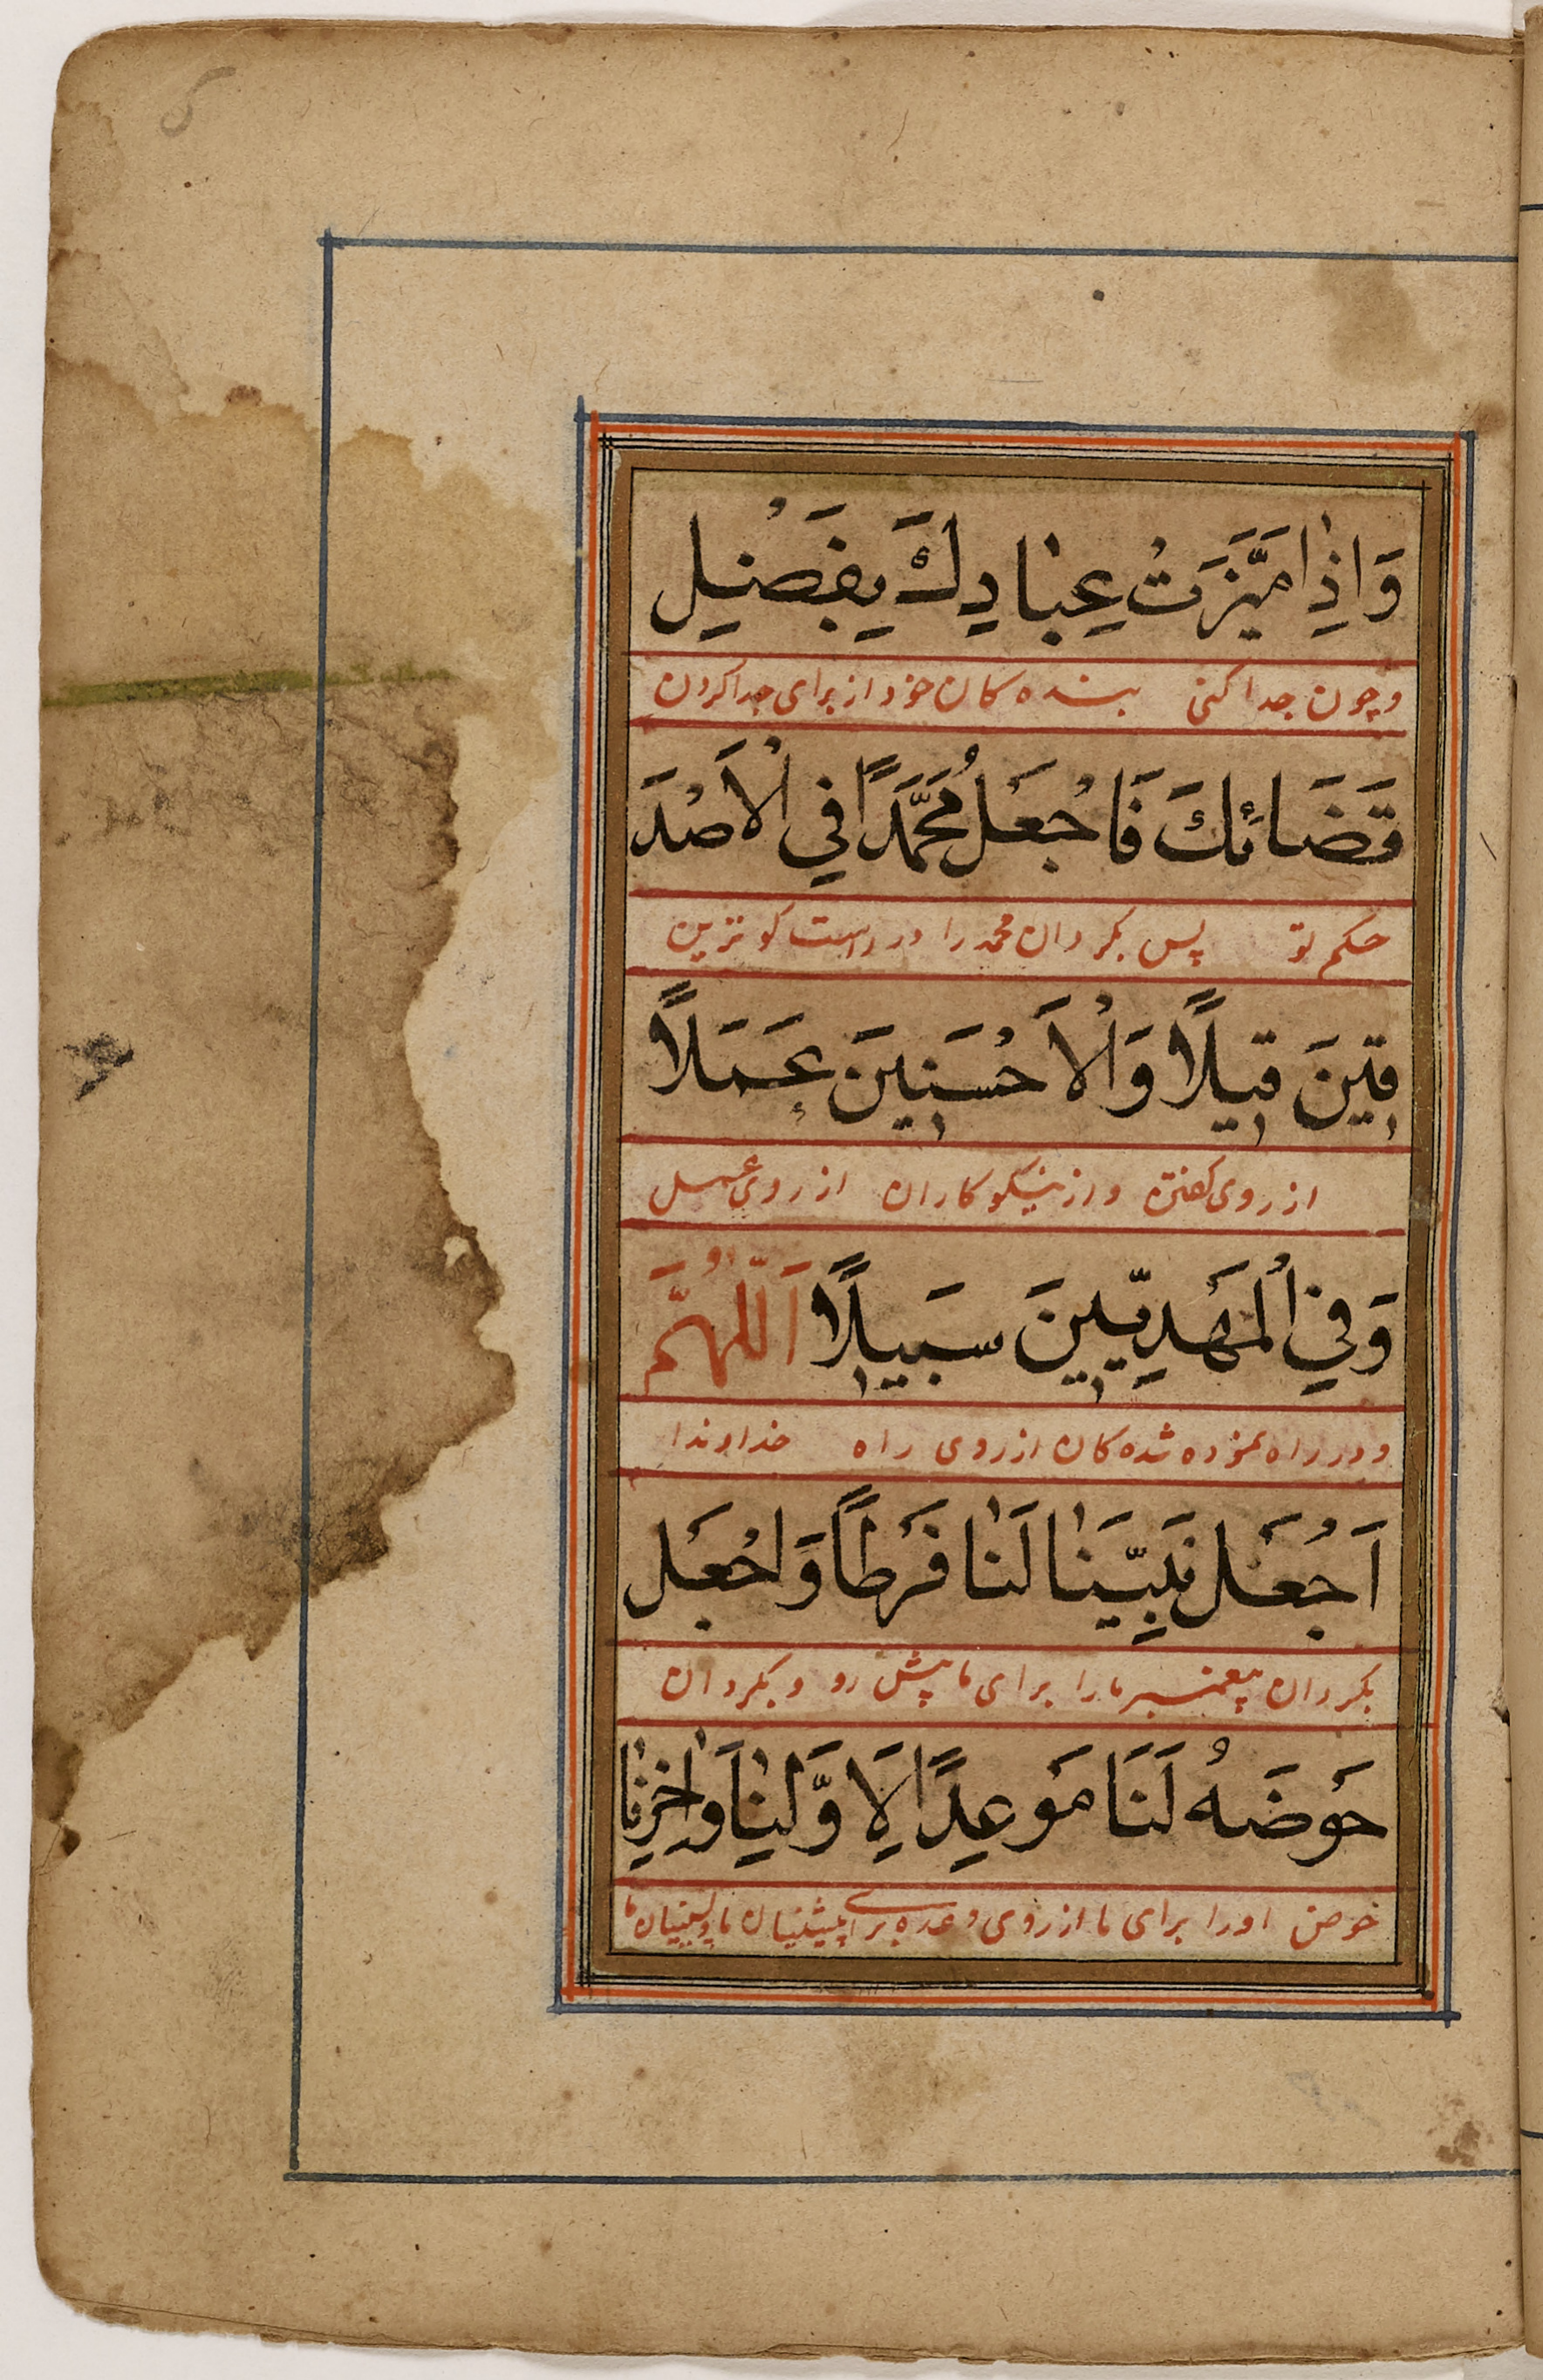 وَاِذٰا مَيَّزْتَ عِبٰادِكَ بِفَصْلِ
وچون جدا کنی بنده کان خود از برای جدا کردن
قَضَائِكَ فَاجْعَلْ مُحَمَّدًا فِي الْاَصْدَ
حکم تو پس بکردان محمد را در راست کو ترین
قِينَ قِيلًا وَالْاَحْسَنِينَ عَمَلًا
از روی کفتن واز نیکو کاران از روی عمل
وَفِي الْمَهْدِيِّينَ سَبِيلًا اَللّٰهُمَّ
ودر راه نموده شده کان از روی راه خداوندا
اَجْعَلْ نَبِيَّنٰا لَنٰا فَرَطًا وَاجْعَل
بکردان پیغمبر ما را برای ما پیش رو و بکردان
حَوْضَهُ لَنَا مَوْعِدًا لِاَوَّلِنٰا وَاٰخِرِنٰا
حوض اورا برای ما از روی وعده برای پیشینیان ما